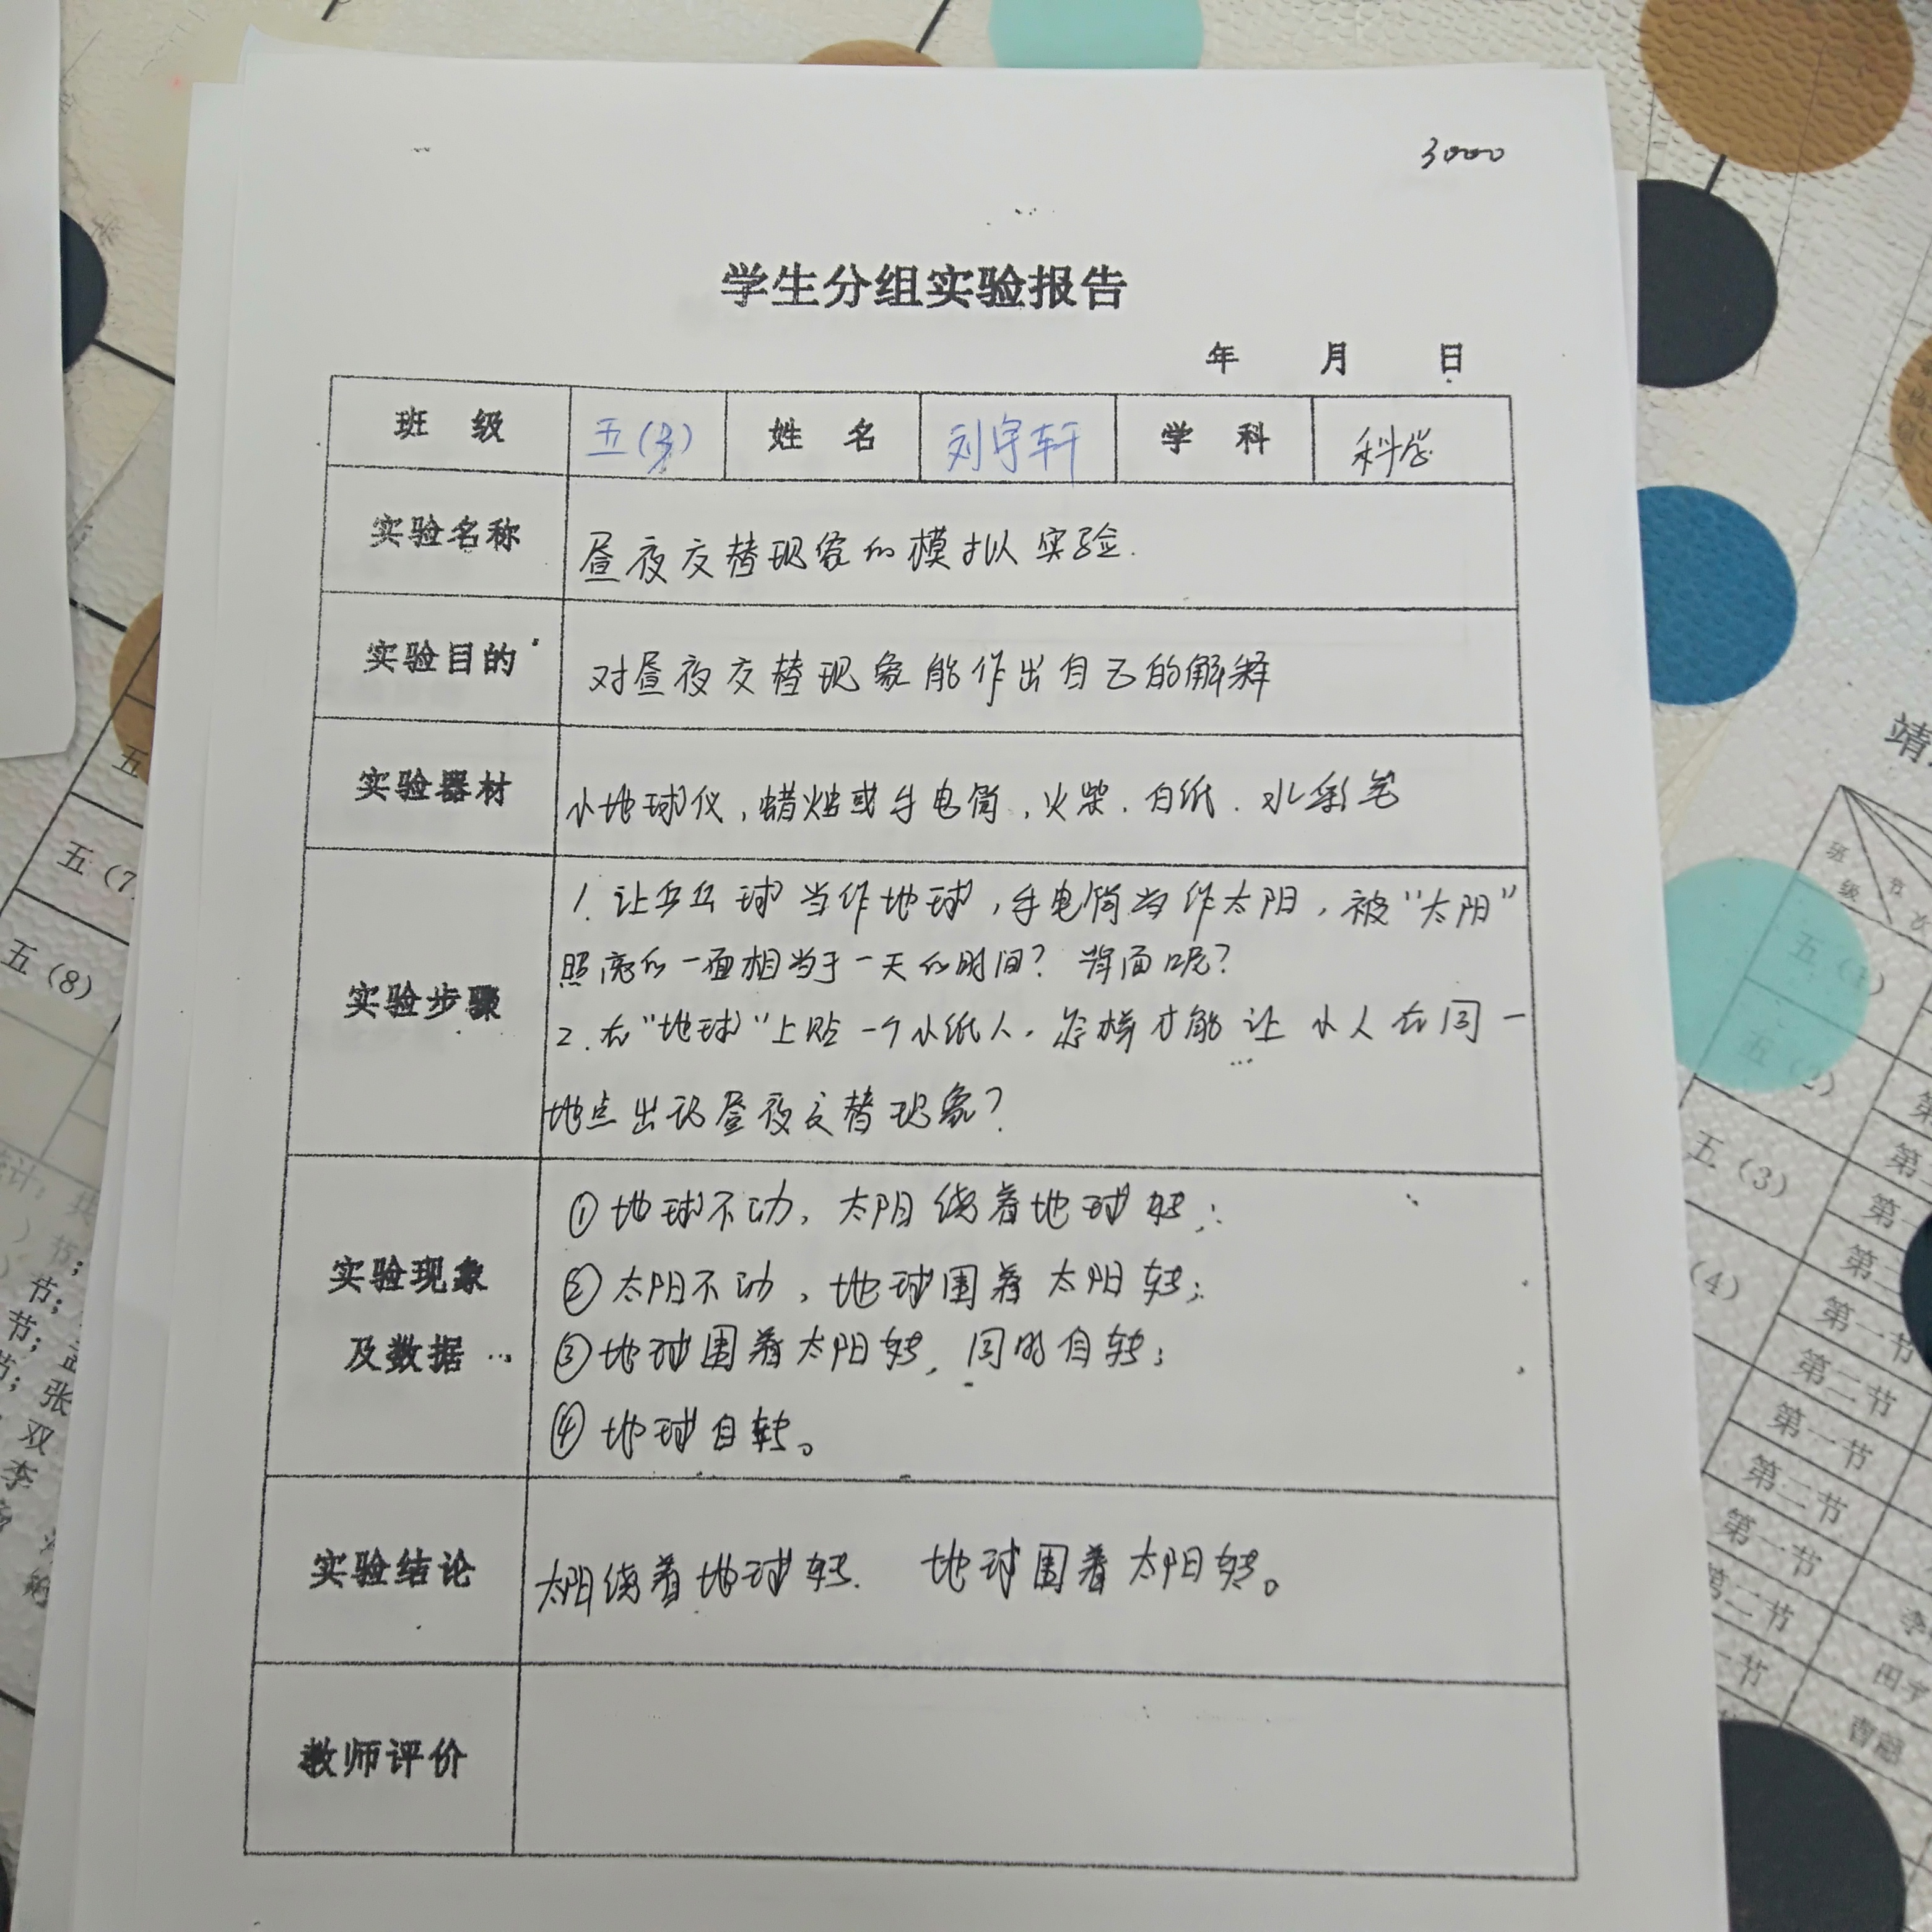 3000
学生分组实验报告
年 月 日
班 级 五(3) 姓 名 刘宇轩 学 科 科学
实验名称 昼夜交替现象的模拟实验.
实验目的 对昼夜交替现象能作出自己的解释
实验器材 小地球仪,蜡烛或手电筒,火柴.白纸.水彩笔
1.让乒乓球当作地球,手电筒当作太阳,被“太阳”
照亮的一面相当于一天的时间?背面呢?
实验步骤
2.在“地球”上贴一个小纸人.怎样才能让小人在同一
地点出现昼夜交替现象?
①地球不动,太阳绕着地球转;
实验现象
②太阳不动,地球围着太阳转;
及数据
③地球围着太阳转,同时自转;
④地球自转。
实验结论 太阳绕着地球转.地球围着太阳转。
教师评价
五(7
五(8)
靖
班
级
节
次
五(1)
五(2)
五(3)
(4)
第一节
第二节
第一节
第二节
第一节
第二节
一节
节;
节;
张
双
李
曹